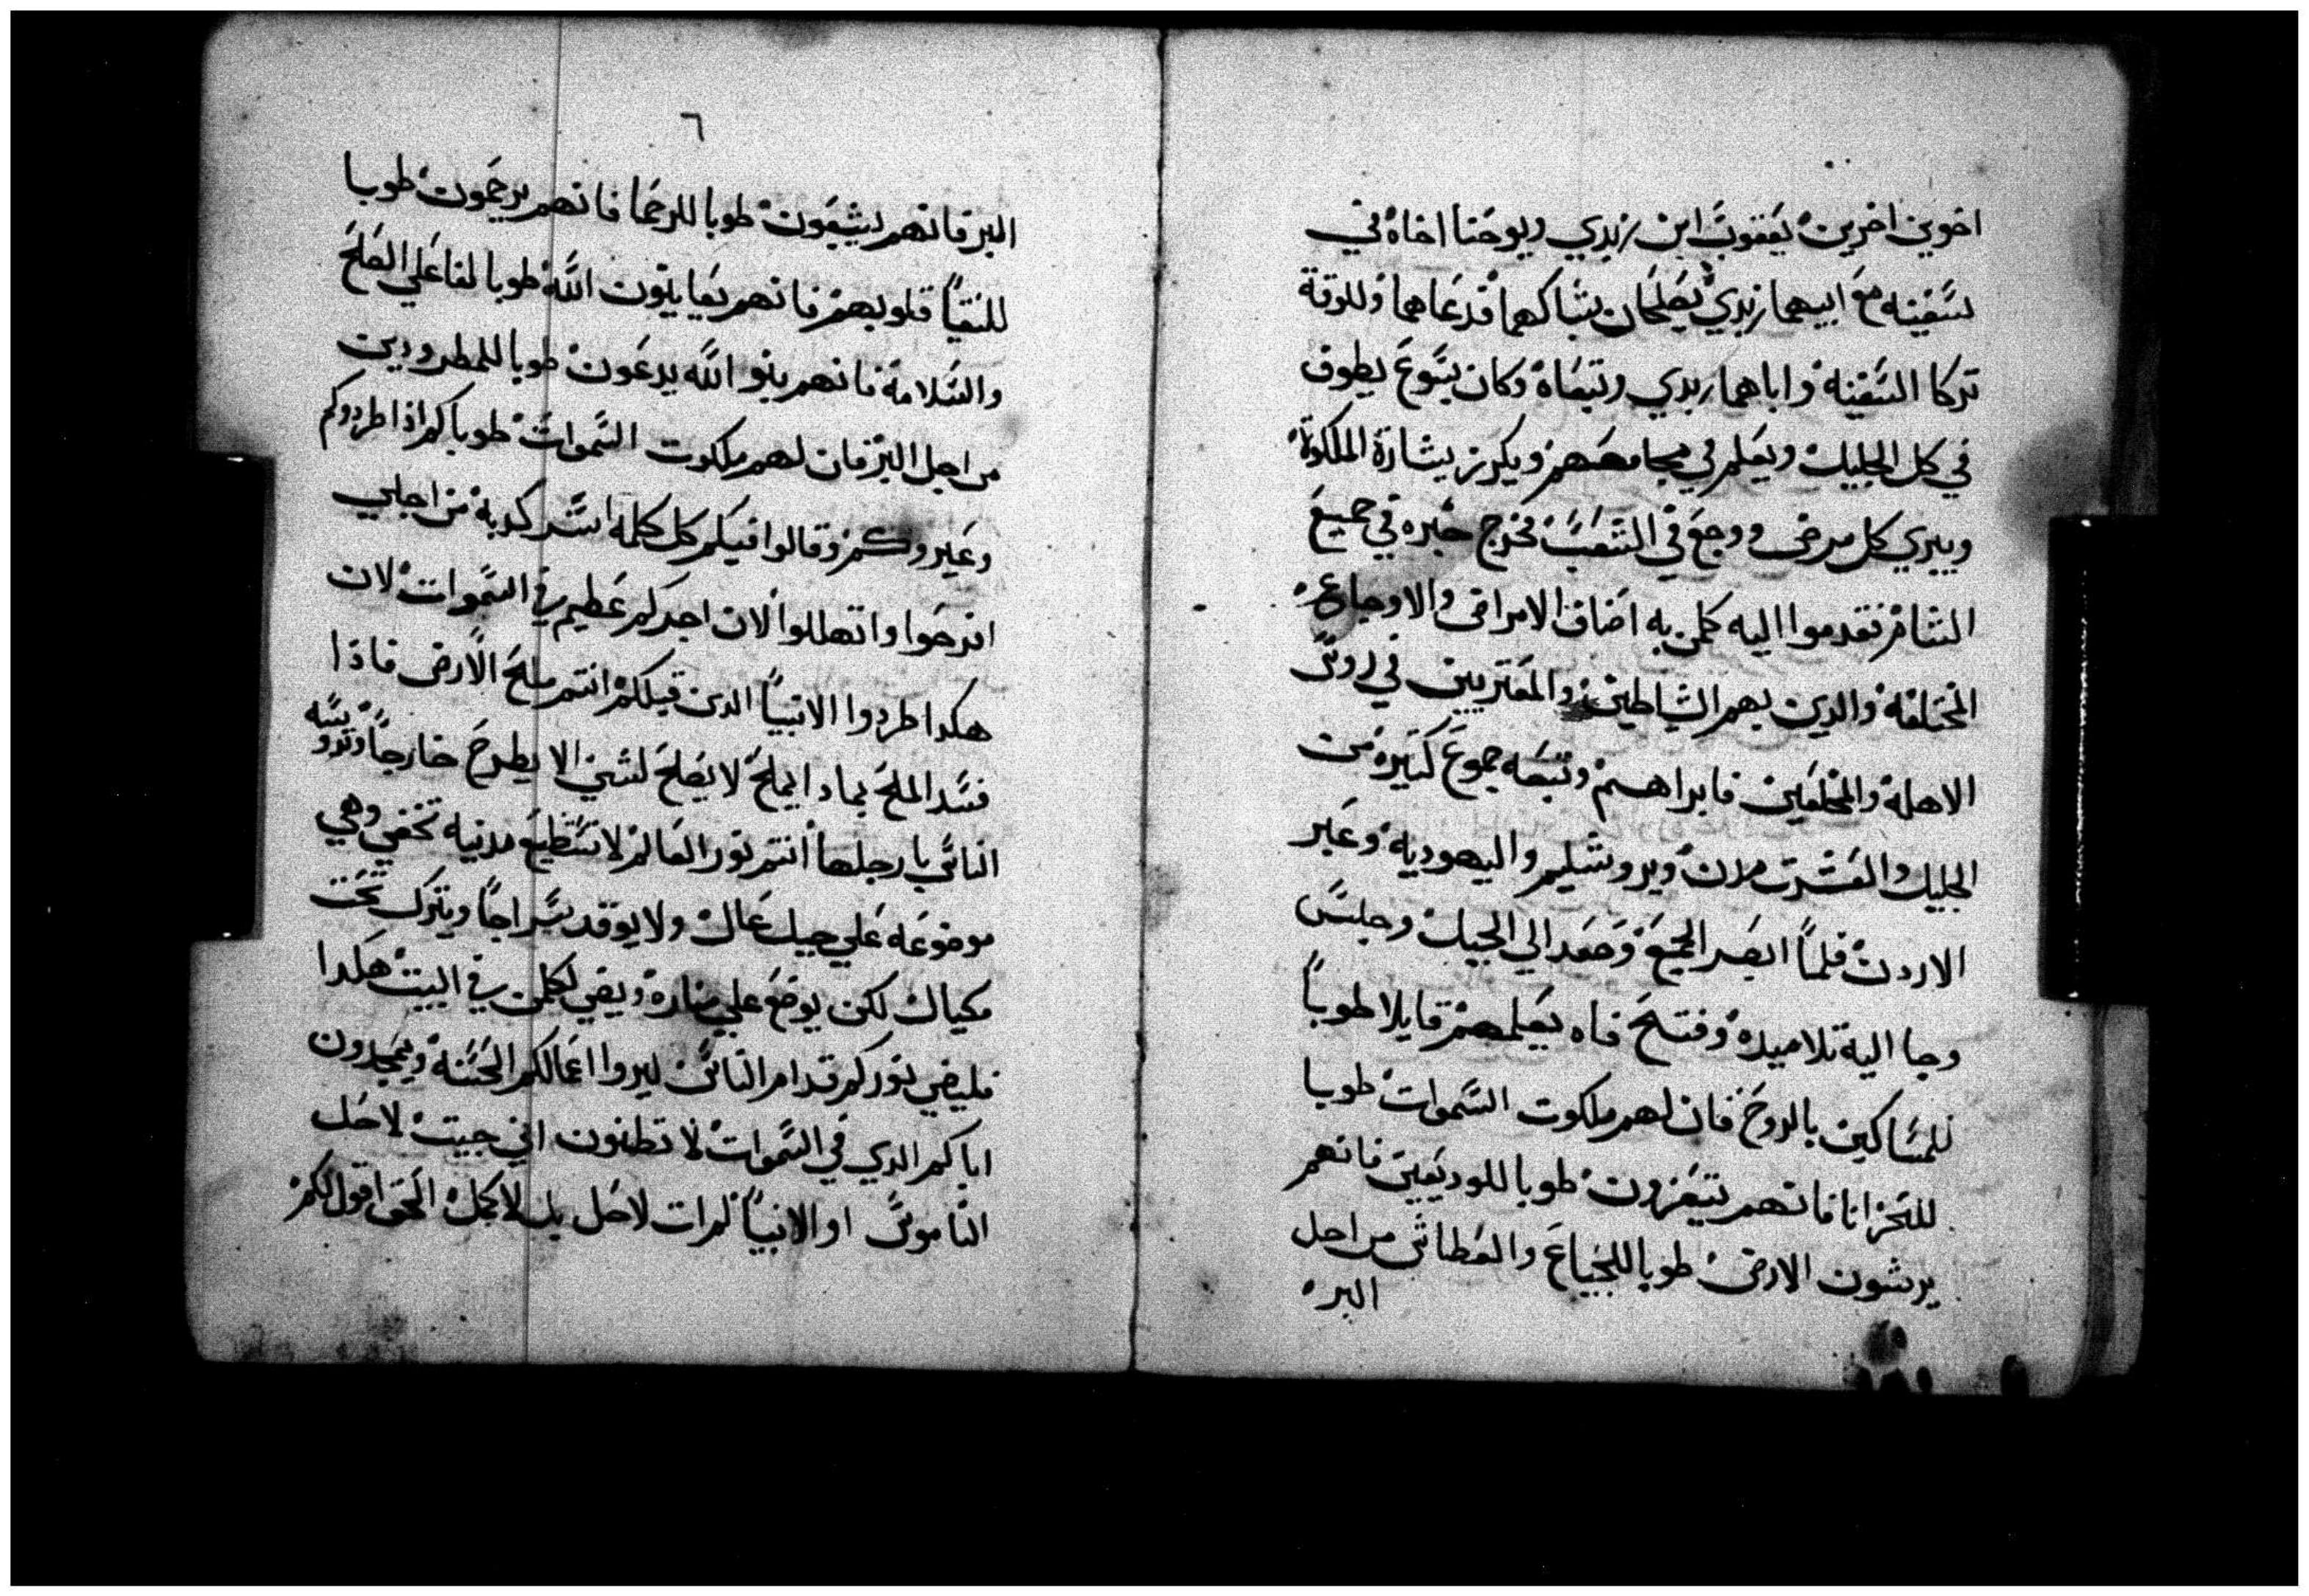 اخوين اخرين يعقوب ابن زبدي ويوحنا اخاه في
سفينه مع ابيهما زبدي يصلحان شباكهما فدعاهما وللوقة
تركا السفينه واباهما زبدي وتبعاه وكان يسوع يطوف
في كل الجليل ويعلم في مجامعهم ويكرز بشارة الملكوة
ويبري كل مرض ووجع في الشعب فخرج خبره في جميع
الشام فقدموا اليه كلمن به اصناف الامراض والاوجاع
المختلفه والدين بهم الشياطين والمعتريين في روس
الاهلة والمخلعين فابراهم وتبعه جموع كثيره من
الجليل والعشرت مدن ويروشليم واليهوديه وعبر
الاردن فلما ابصر الجمع وصعد الي الجبل وجلس
وجا الية تلاميده وفتح فاه يعلمهم قايلا طوبا
للمساكين بالروح فان لهم ملكوت السموات طوبا
للحزانا فانهم يتعزون طوبا للوديعين فانهم
يرتون الارض طوبا للجياع والعطاش من اجل
البر
٦
البر فانهم يشبعون طوبا للرحما فانهم يرحمون طوبا
للنقيا قلوبهم فانهم يعاينون الله طوبا لفاعلي الصلح
والسلامة فانهم بنو الله يدعون طوبا للمطرودين
من اجل البر فان لهم ملكوت السموات طوباكم اذا طردوكم
وعيروكم وقالوا فيكم كل كلمه شر كدبة من اجلي
افرحوا واتهللوا لان اجركم عظيم في السموات لان
هكدا طردوا الانبيا الدين قبلكم انتم ملح الارض فاذا
فسد الملح بمادا يملح لا يصلح لشي الا يطرح خارجا وتدوسه
الناس بارجلها انتم نور العالم لا تستطيع مدنيه تخفي وهي
موضوعه علي جبل عال ولا يوقد سراجا ويترك تحت
مكيال لكن يوضع علي مناره ويضي لكلمن في البيت هكدا
فليضي نوركم قدام الناس ليروا اعمالكم الحسنة ويمجدون
اباكم الدي في السموات لا تظنون اني جيت لاحل
الناموس او الانبيا لم ات لاحل بل لاكمل الحق اقول لكم